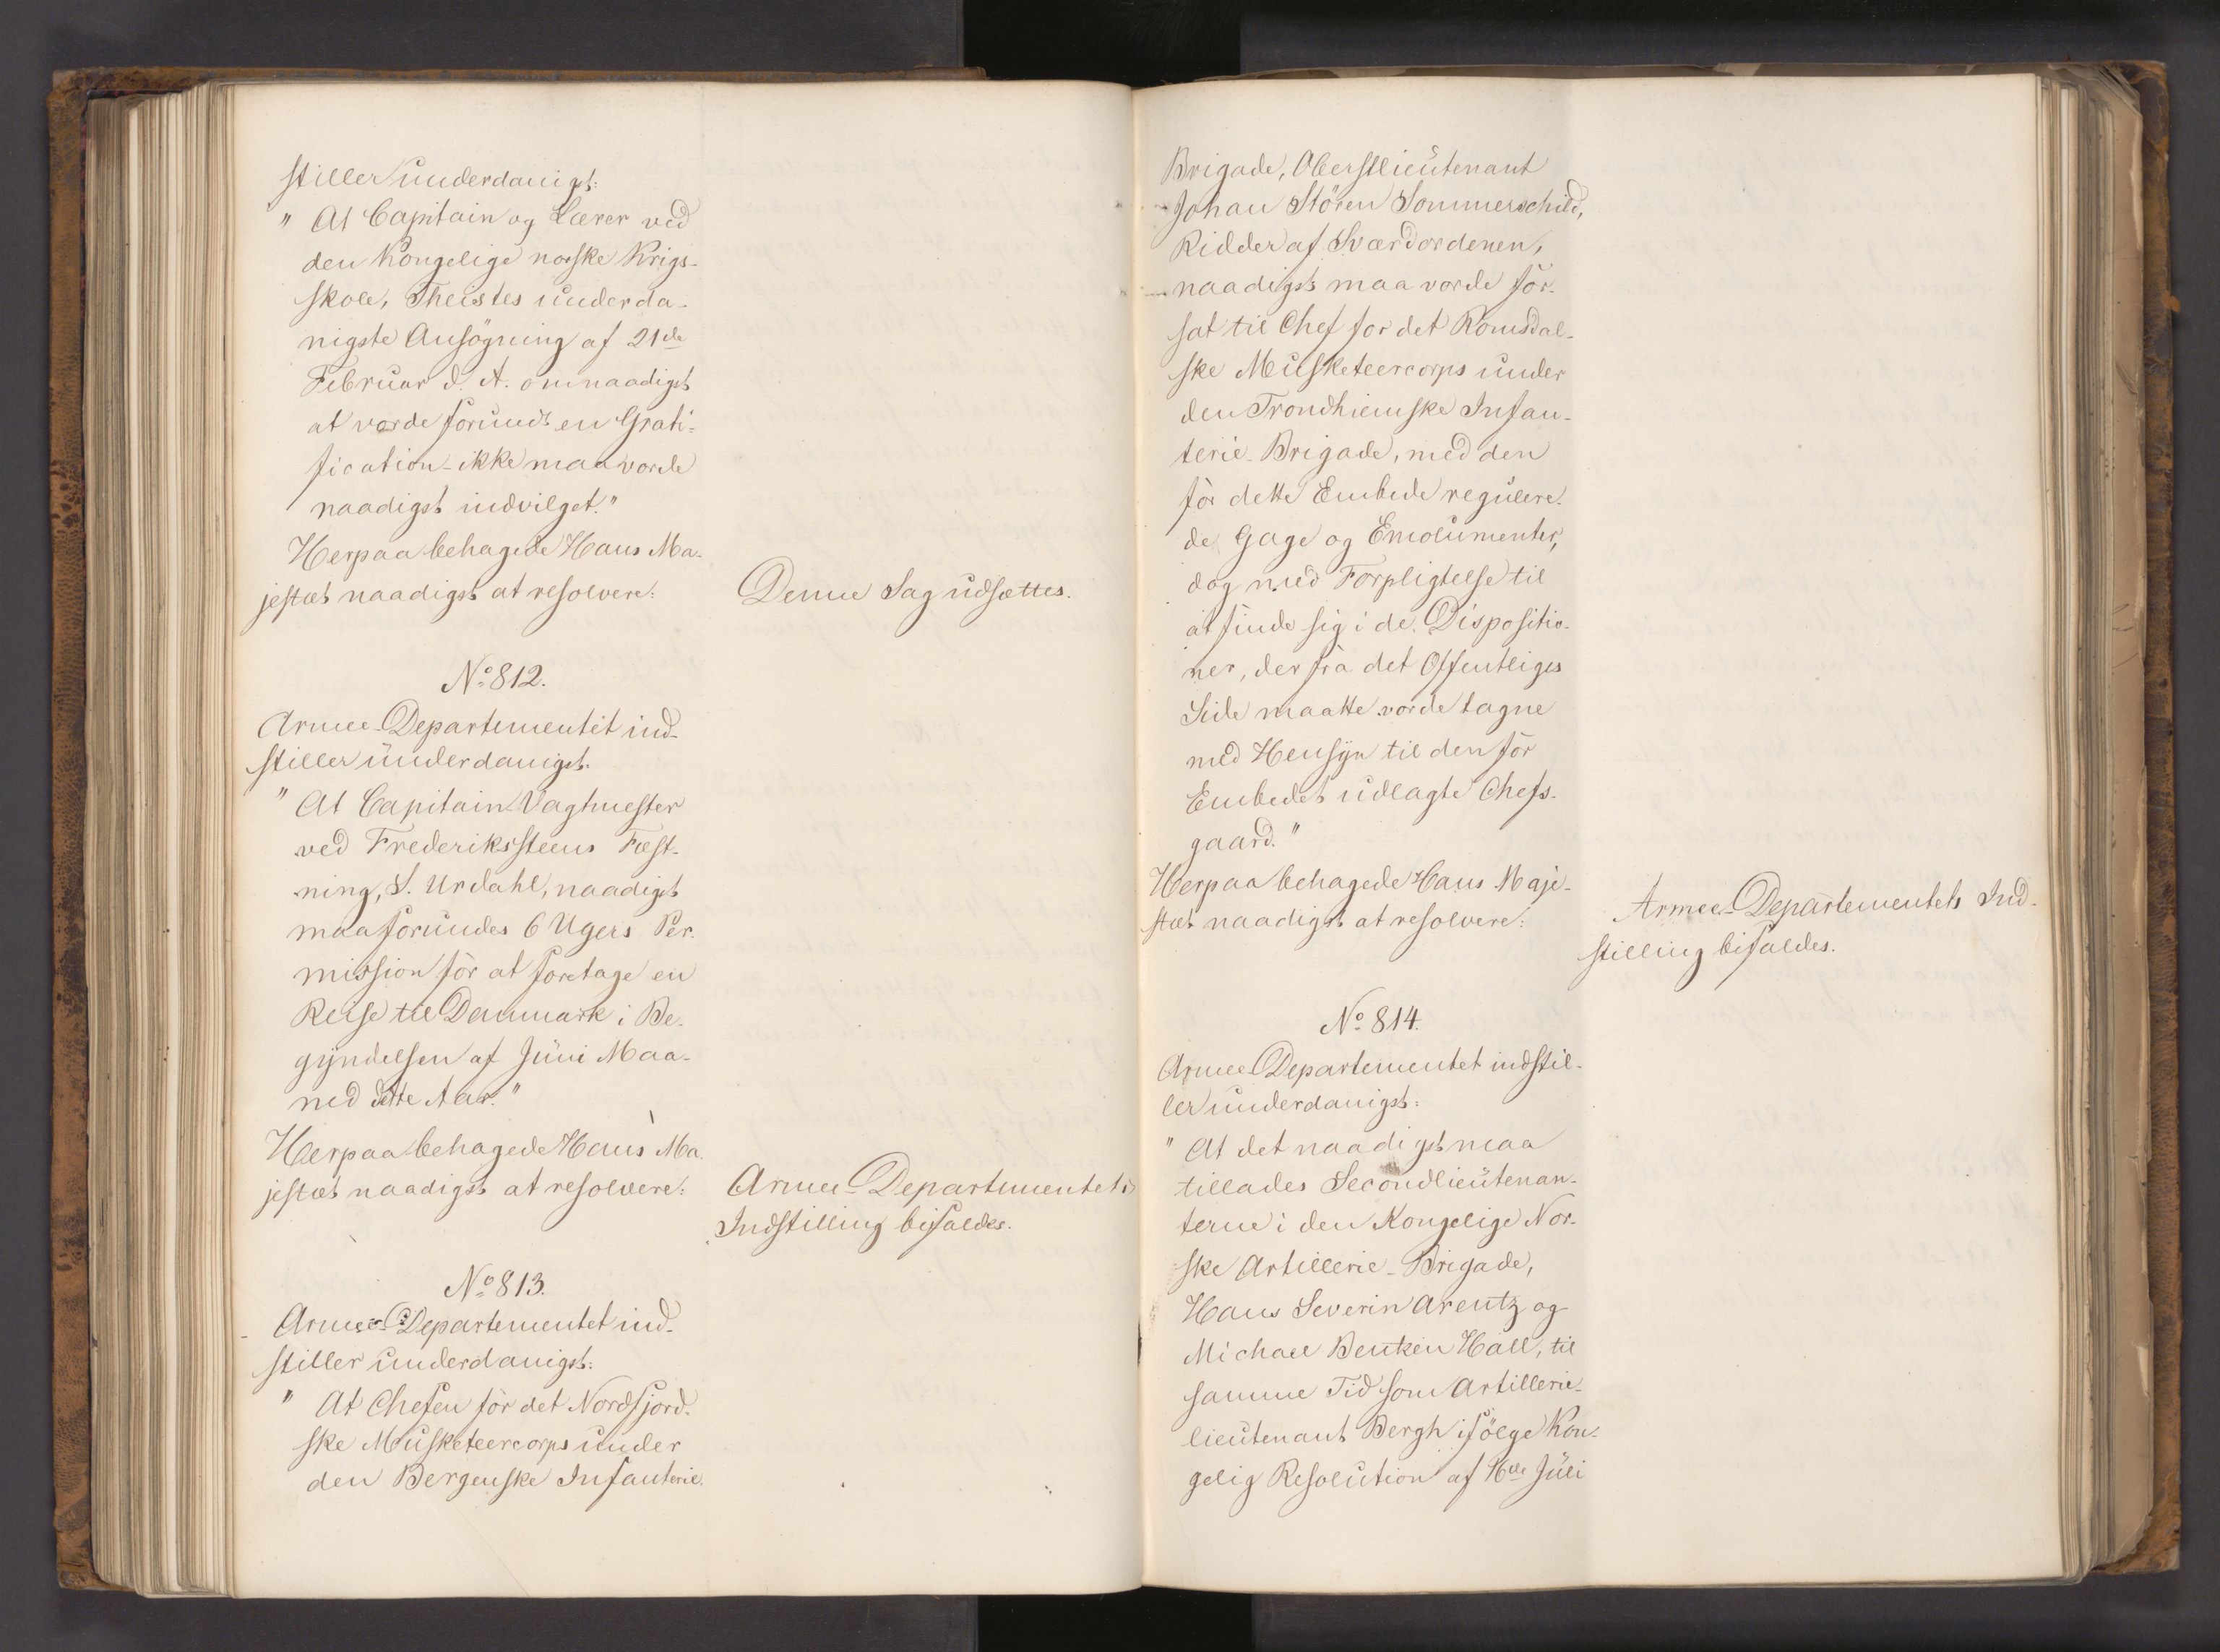 stiller underdanigst:
" At Capitain og Lærer ved
den Kongelige norske Krigs-
skole, Theistes underda-
nigste Ansögning af 21de
Februar d. A. om naadigst
at vorde forundt en Grati-
fication - ikke maa vorde
naadigst indvilget."
Herpaa behagede Hans Ma-
jestæt naadigst at resolvere:
Denne Sag udsættes.
No 812.
Armee-Departementet ind-
stiller underdanigst:
" At Capitain Vagtmester
ved Frederikssteens Fæst-
ning, S. Urdahl, naadigst
maa forundes 6 Ugers Per-
mission för at foretage en
Reise til Danmark i Be-
gyndelsen af Juni Maa-
ned dette Aar."
Herpaa behagede Hans Ma-
jestæt naadigst at resolvere:
Armee-Departementets
Indstilling bifaldes.
No 813.
Armee-Departementet ind-
stiller underdanigst:
" At Chefen för det Nordfjord-
ske Musketeercorps under
den Bergenske Infanterie-
Brigade, Oberstlieutenant
Johan Stören Sommerschild,
Ridder af Sværdordenen,
naadigst maa vorde for-
sat til Chef for det Romsdal-
ske Musketeercorps under
den Trondhiemske Infan-
terie-Brigade, med den
för dette Embede regulere-
de Gage og Emolumenter,
dog med Forpligtelse til
at finde sig i de Dispositio-
ner, der fra det Offentliges
Side maatte vorde tagne
med Hensyn til den för
Embedet udlagte Chefs-
gaard."
Herpaa behagede Hans Maje-
stæt naadigst at resolvere:
Armee-Departementets Ind-
stilling bifaldes.
No 814.
Armee-Departementet indstil-
ler underdanigst:
" At det naadigst maa
tillades Secondlieutenan-
terne i den Kongelige Nor-
ske Artillerie-Brigade,
Hans Severin Arentz og
Michael Bentzen Hall, til
samme Tid som Artillerie-
lieutenant Bergh ifölge Kon-
gelig Resolution af 16de Juli